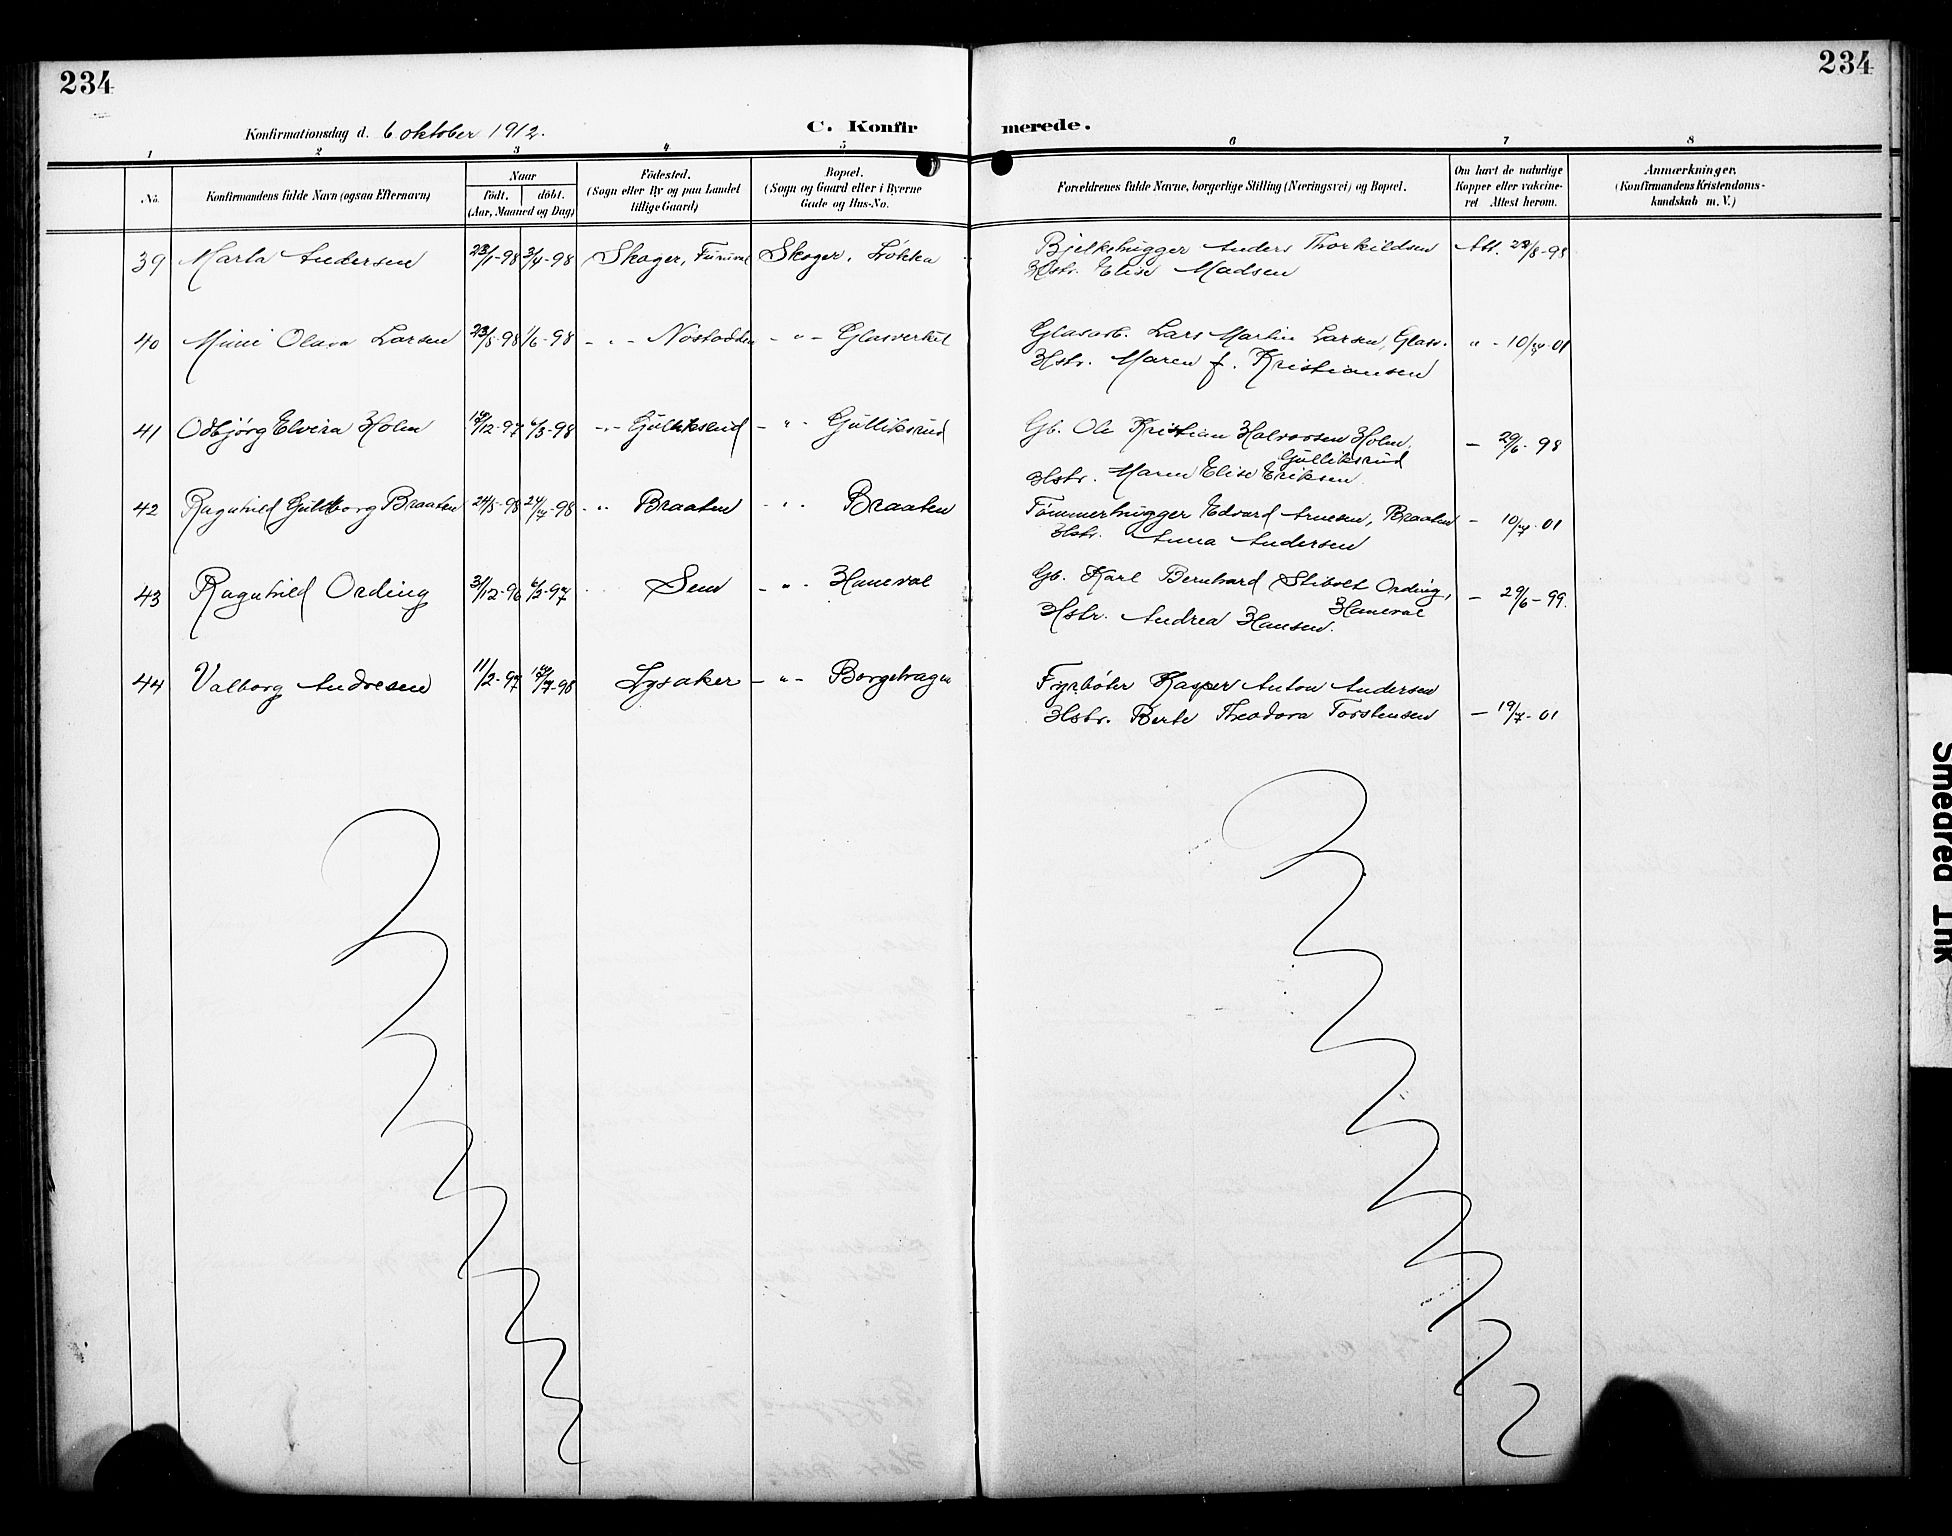 234
234
Konfirmationsdag d. 6 oktober 1912.
C. Konfir
merede.
1 2 3 4 5 6 7 8
No.
Konfirmandens fulde Navn (ogsaa Efternavn)
Naar
født. døbt.
(Aar, Maaned og Dag)
Fødested.
(Sogn eller By og paa Landet
tillige Gaard)
Bopæl.
(Sogn og Gaard eller i Byerne
Gade og Hus-No.
Forældrenes fulde Navne, borgerlige Stilling (Næringsvei) og Bopæl.
Om havt de naturlige
Kopper eller vakcine-
ret Attest herom.
Anmærkninger,
(Konfirmandens Kristendoms-
kundskab m. V.)
39 Marta Andersen 23/1-98 3/4-98 Skoger, Skoger, Løkka Bjelkehugger Anders Thorkildsen Att. 23/8-98
Hstr. Elise Madsen
40 Mimi Olava Larsen 23/8-98 1/6-98 - " - Nøstodden - " - Glasverket Glasarb. Lars Martin Larsen, Glasv. " - 10/7-01
Hstr. Maren f. Kristiansen
41 Odbjørg Elvira Holm 12-97 6/3-98 - " - Gulliksrud - " - Gulliksrud Gb. Ole Kristian Halvorsen Holm, - 29/6-98
Gulliksrud
Hstr. Maren Elise Eriksen.
42 Ragnhild Gullborg Braaten 24/5-98 24/7-98 - " Braaten - " - Braaten Tømmerhugger Edvard Arnesen, Braaten - 10/7-01
Hstr. Anna Andersen
43 Ragnhild Ording 31/12-96 6/2-97 Sem - " - Haneval Gb. Karl Bernhard Stibolt Ording, - 29/6-99.
Haneval
Hstr. Andrea Hansen.
44 Valborg Andresen 11/2-97 7-98 Lysaker - " - Borgetvagen Fyrbøter Kasper Anton Andersen
Hstr. Berte Theodora Torstensen - 19/7-01
Smeared Ink